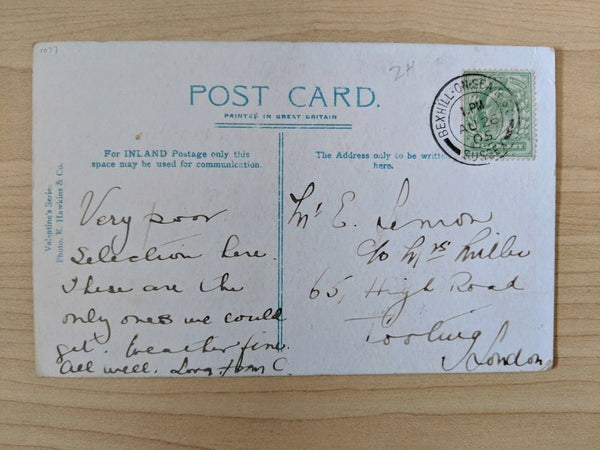 1077
24
POST CARD.
PRINTED IN GREAT BRITAIN
BEXHILL-ON-SEA
1 PM
AU 26
05
SUSSEX
For INLAND Postage only this
space may be used for communication.
The Address only to be written
here.
Valentine's Series.
Photo. E. Hawkins & Co.
Very poor
selection here.
These are the
only ones we could
get. Weather fine.
All well. Love from C.
Mr E. Lemon
c/o Mrs Miller
65, High Road
Tooting
London